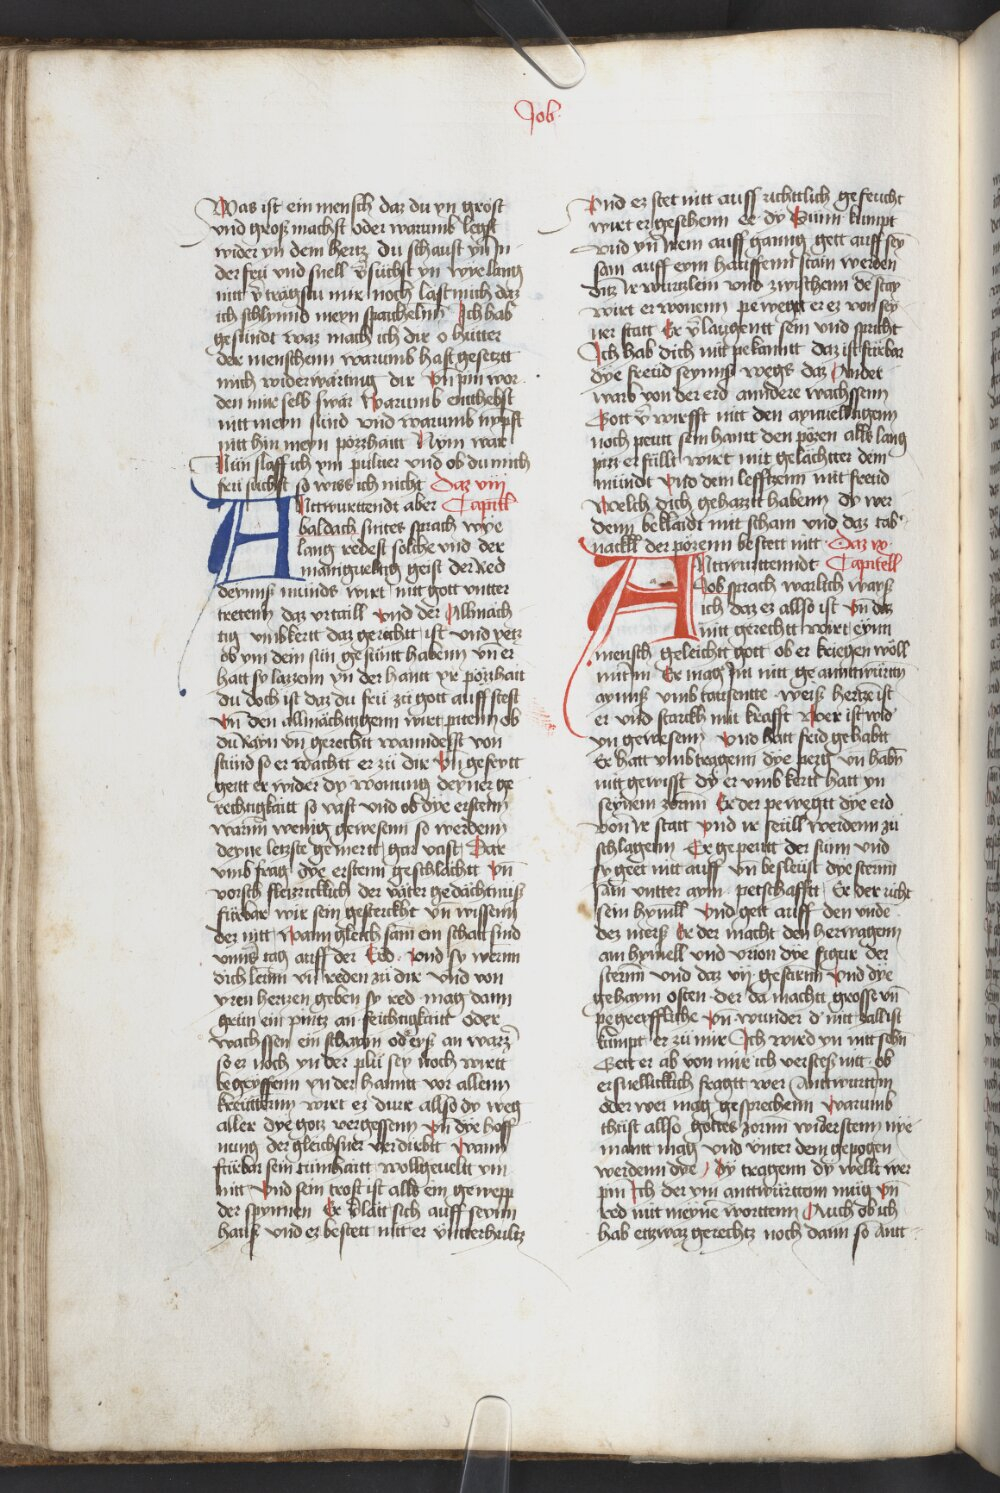 Job
Was ist ein mensch daz du yn gröst
vnd groß machst oder warumb legst
wider yn dem hertz du schaust yn in
der frü vnd snell v̄süchst yn wye lang
nitt v̄trägstu mir noch last mich daz
ich schlynnd meyn spaicheln Ich hab
gesündt waz mach ich dir o hütter
der menschenn warumb hast gesetztt
mich widerwärtig dir vn̄ pin wor
den mir selb swär Warumb enthebst
nitt meyn sünd vnd warumb nypst
nitt hin meyn pözzhaitt Nym war
Nün slaff ich ym puluer vnd ob du mich
frü süchst so waiss ich nicht Daz viii
ANttwurttendt aber Capitl
baldach suites sprach wye
lang redest solche vnd der
manigueltig geist der red
deynnß münds wirt mitt gott vntter
trettenn daz vrtaill vnd der Allmäch
tig vmbkertt daz gerächtt ist vnd yetz
ob ym dem sün gesüntt habenn vn̄ er
hatt sy lazzenn yn der hantt yr pözzhaitt
du doch ist daz du frü zü gott auff stest
vn̄ den allmächtigenn wirt pitenn ob
du Rayn vn̄ gerechtt wanndesst von
stünd so er wachtt er zü dir vn̄ gefrytt
gertt er wider dy wonung deyner ge
rechtigkaitt so vast vnd ob dye erstenn
warnn wenig gewesenn so werdenn
deyne letzste gemertt gar vast Dar
vmb frag dye erstenn geschlächtt vn̄
vorsch fleizzicklich der väter gedächtnuß
fürbar wir sein gesterckht vn̄ wissenn
der nitt Wann gleich sam ein schatt sind
vnnß tag auff der Erd vnd sy wernn
dich lernn vn̄ reden zü dir vnd von
yren hertzen geben sy red mag dann
grün ein pintz an feüchtigkaitt oder
wachssen ein schaym od̓ erß an warz̓
so er noch yn der plü sey noch wirtt
begryffenn yn der hanntt vor allenn
kreütternn wirt ez dürr allso dy weg
aller dye gotz vergessenn vn̄ dye hoff
nung der gleichsner verdirbtt Wann
fürbar sein tümhaitt wollgeueltt ym
nitt vnd sein trost ist allß ein gewepp
der spynnen Er v̄laitt sich auff seynn
hauß vnd ez bestett nitt er v̄ntterhültz
vnd ez stet nitt auff richttlich gefeucht
wirt er geschenn ee dy Sünn kumpt
vnd yn̄ irem auff ganng gett auff sey
sam auff eym hauffenn stain werden
ditz ir wurtzlein vnd zwischenn de̅ stay
wirt er wonenn pewegtt er ez von sey
ner statt Er v̄laugentt sein vnd spricht
Ich hab dich nit pekanntt daz ist fürbar
dye freüd seynnß wegs daz Ander
warb von der erd anndere wachssenn
Gott v̄wirfft nitt den aynueltigenn
noch peütt sein hantt den pözen allß lang
pizz er füllt wirt mit gelächtter dein
münndt vnd dein lefftzenn mit freüd
Welch dich gehazztt habenn dy wer
denn beklaidt mit scham vnd daz tab
nackl der pözenn bestett nitt Daz ix
ANttwurttenndt Capitell
Job sprach warlich wayß
ich daz ez allso ist vn̄ daz
nitt gerechtt wirt eynn
mensch geleichtt gott ob er kriegen wöll
mit im Er mag im nitt geanttwürtn̄
aynnß vmb tausentte weiß hertze ist
er vnd starckh mit krafft Wer ist wid̓
yn gewesenn vnd hatt frid gehabtt
Er hatt vmbtragenn dye perg vn̄ habn̄
nitt gewisst dy er vmbkertt hatt yn
seynem zornn Er der pewegtt dye erd
von ir statt vnd ir seüll werdenn zü
schlagenn Er gepeütt der sünn vnd
sy geet nitt auff vn̄ besleüst dye sternn
sam vntter aym petschafftt Er der richt
sein hymll vnd gett auff den vnde̅
dez merß Er der macht den herwagenn
am hymell vnd vrion dye figur der
sternn vnd daz vij gestirnn vnd dye
gehaym osten der da machtt grosse vn̄
pegreyffliche vn̄ wunder d̓ nitt zall ist
kumpt er zü mir Ich wird yn nitt sehn̄
Gett er ab von mir ich versteß nitt ob
er snellicklich fragtt wer anttwurtt im
oder wer mag gesprechenn Warumb
thüst allso gottes zornn widerstenn nye
mantt mag vnd vntter dem gepogen
werdenn dye / dy tragenn dy wellt wer
pin Ich der ym anttwürttem müg vn̄
red mit meyne̅ worttenn Auch ob ich
hab etzwaz gerechtz noch dann so antt